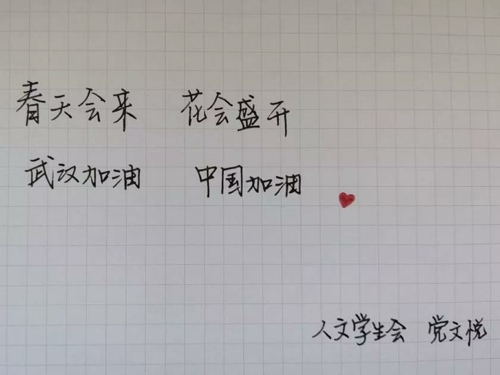 春天会来 花会盛开
武汉加油 中国加油
人文学生会 党文悦